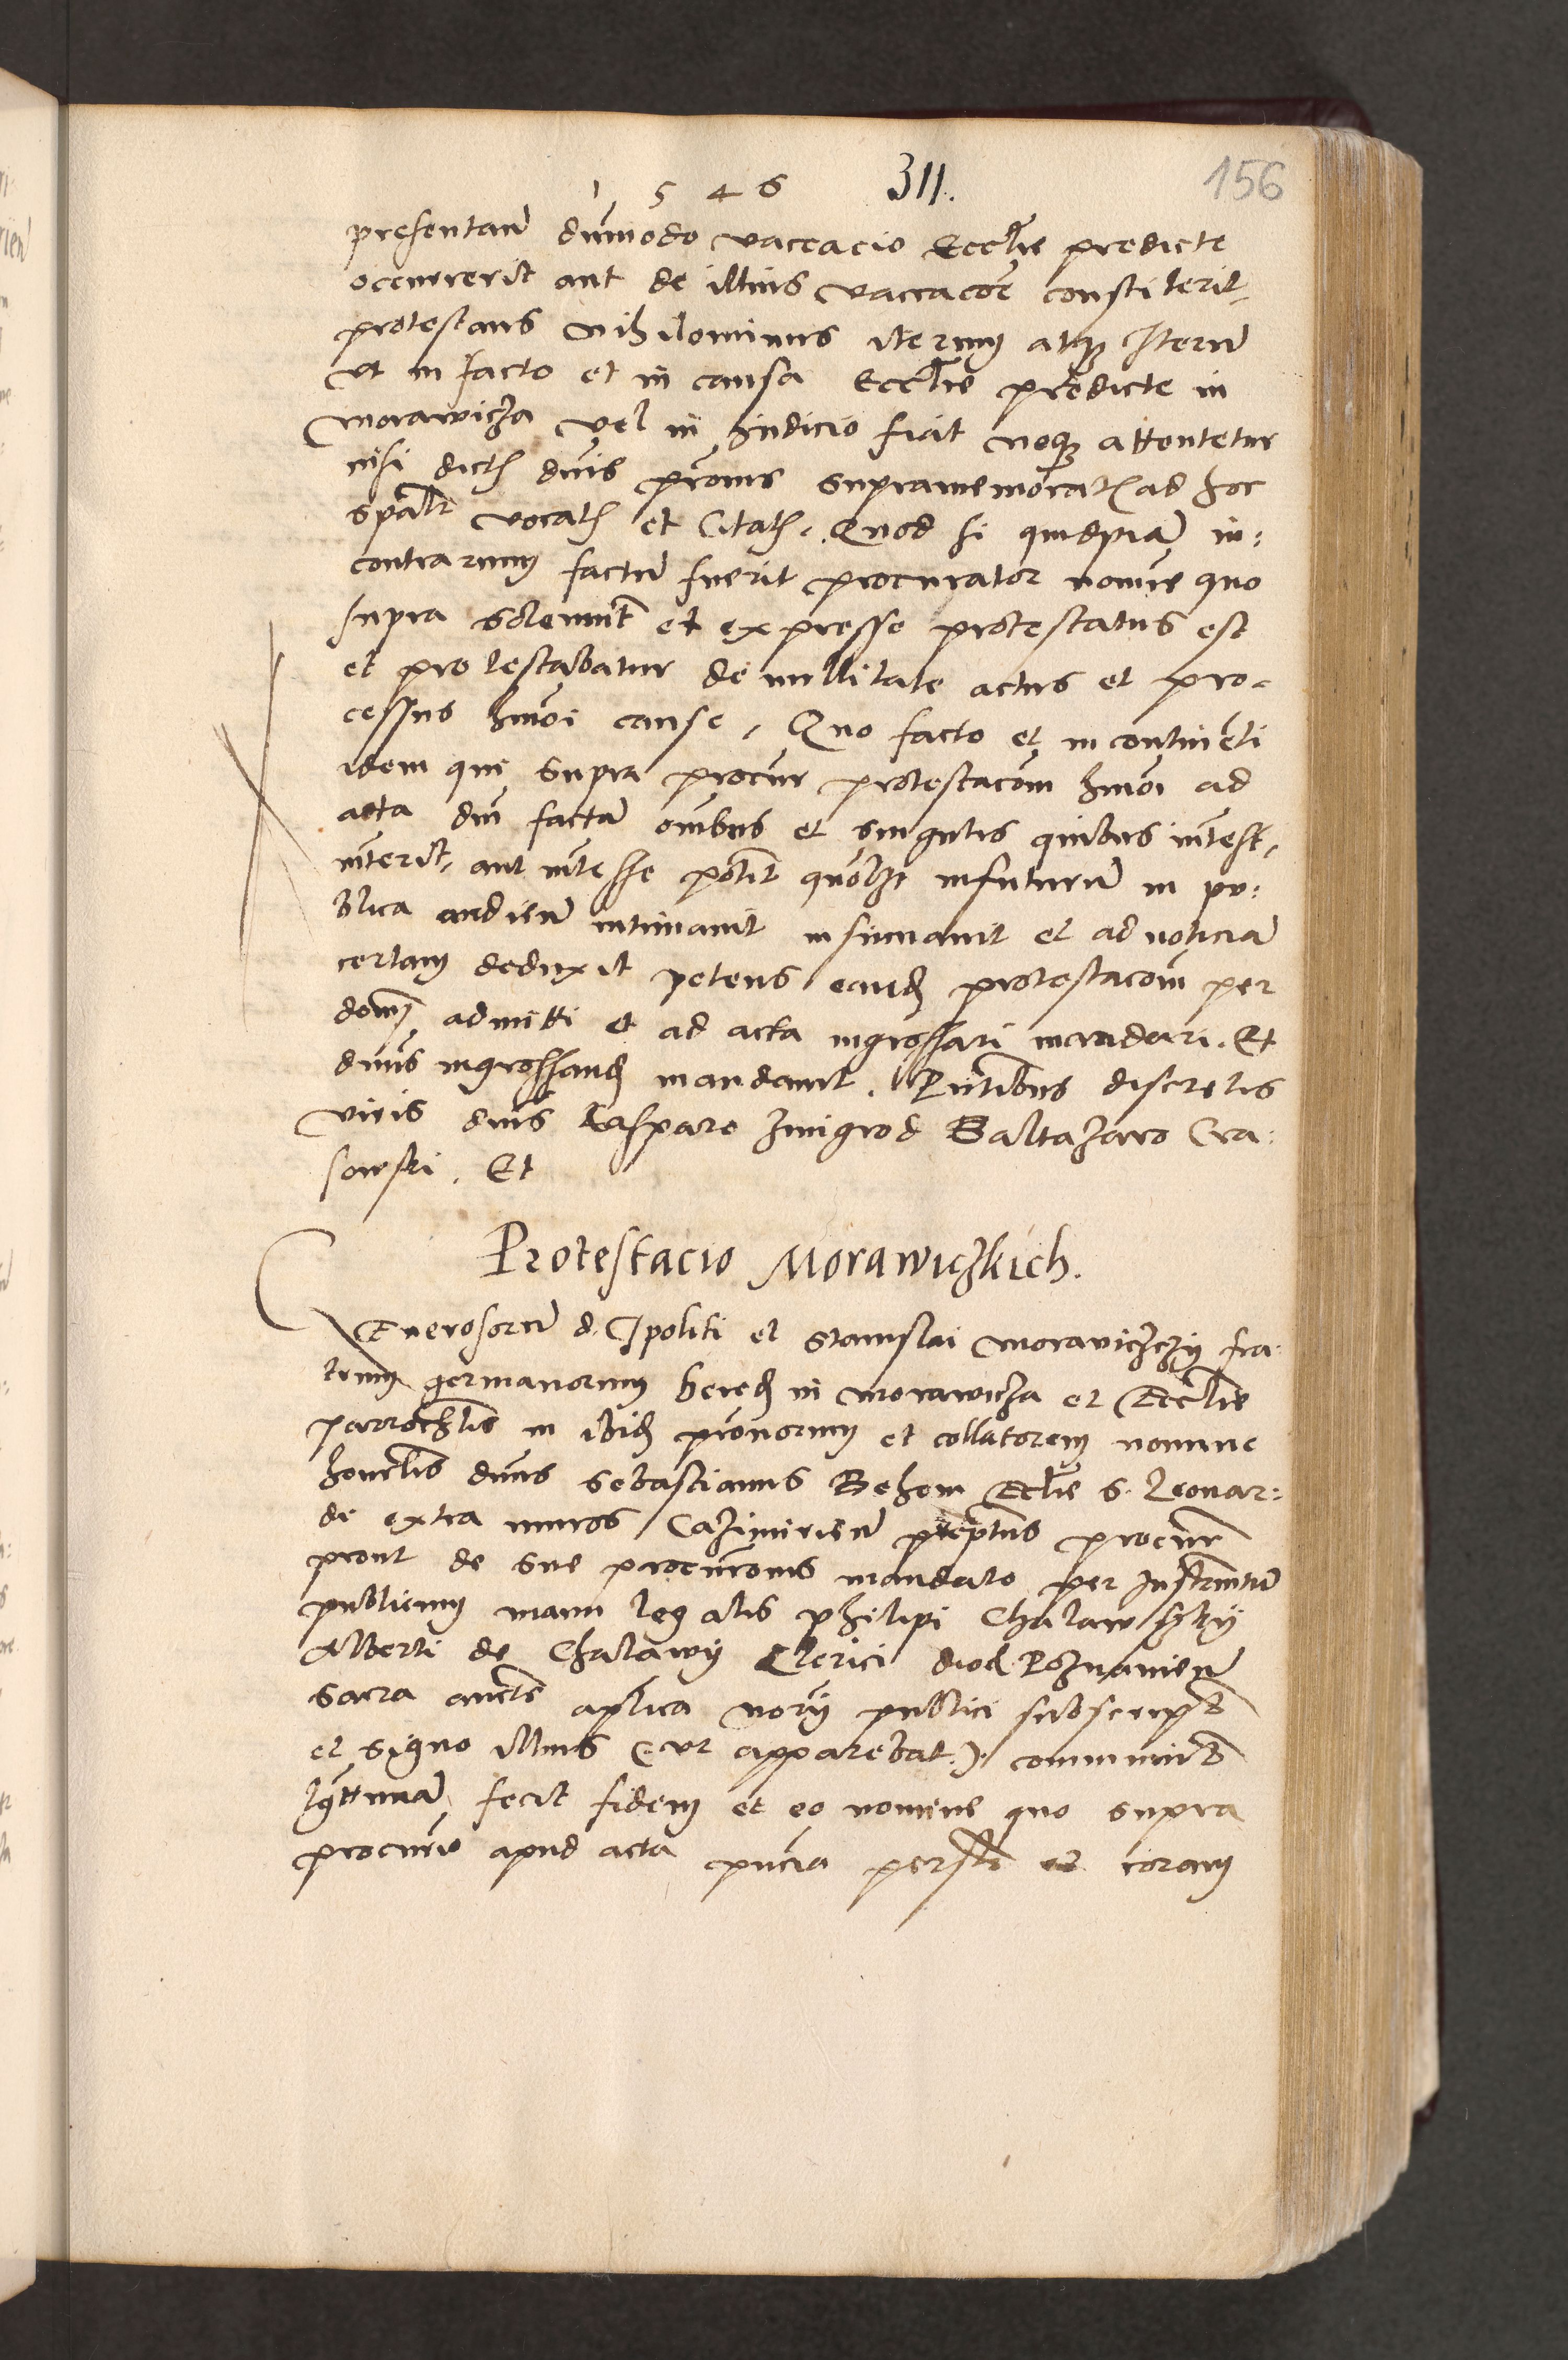 1546 311. 156
presentarum dummodo vaccacio Eccl̄ie predicte
occurrerit aut de illius vaccac̄oe constiterit,
protestans nihilominus iterum atq̨ Iterū
ut in facto et in causa Eccl̄ie predicte in
Morawicza vel in Iudicio fiat neq̨ attentetur
nisi dict̨ dn̄is pr̄onis supramemorat̨ ad hoc
spāli vocat̨ et Citat̨. Quod si quidpiā in:
contrarium factū fuerit procurator nomīe quo
supra solemnit̄ et expresse protestatus est
et protestabatur de nullitate actus et pro-
cessus hmōi cause, Quo facto et in contine̅ti
idem qui supra procur̄ protestac̄om hmōi ad
acta dn̄i factā om̄ibus et singulis quibus int̄est,
int̄erit, aut int̄esse pot̄it quōlz̄t infuturū in pu:
blica audienā intimauit insinuauit et ad noticiā
certam deduxit petens eand̨ protestac̄om per
dom̄ admitti et ad acta ingrossari mandari. Et
dn̄us ingrossand̨ mandauit. Pn̄tibus discretis
viris dn̄is Casparo Zmigrod Baltazaro Cra:
sowski. Et
Protestacio Morawiczkich.
GEnerosorū d. Ipoliti et Stanislai Moraviczczÿ fra:
trum germanorum hered̨ in Morawicza et Eccl̄ie
parroch̄lis in ibid̨ pr̄onorum et collatorem nomine
honēlis dn̄us Sebastianus Behem Eccl̄ie S. Leonar:
di extra muros Cazimirien̄ prēptus procur̄
prout de sue procūr̄onis mandato per Instrm̄tū
publicum manu legalis Philipi Chalawszkÿ
Alberti de Chalawÿ Clerici dioc̨ Poznanien̄
sacra auct̄e aplica nor̄ÿ publici subscript̄
et signo illius (: ut apparebat :) communit̄
lgt̄timā fecit fidem et eo nomine quo supra
procur̄io apud acta pn̄cia persl̄r et coram